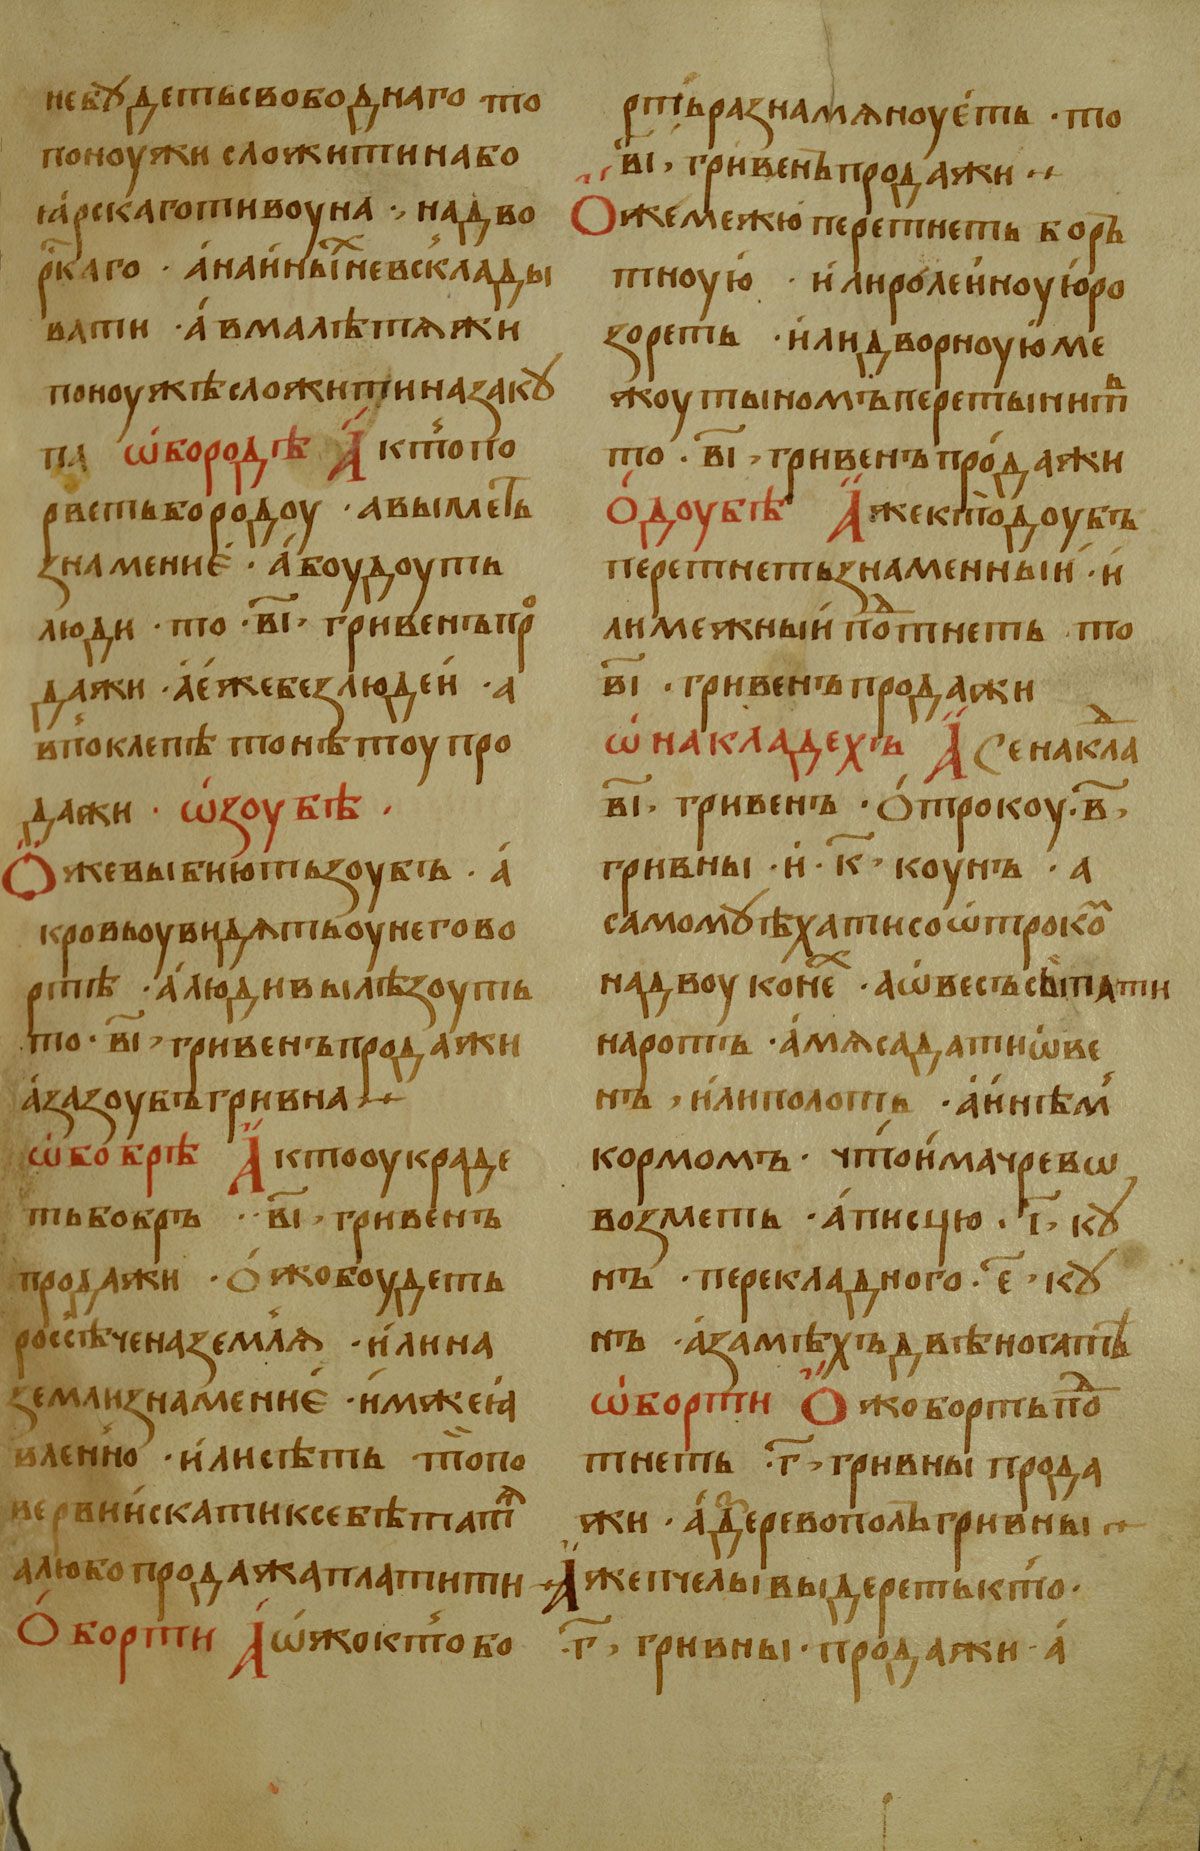 небꙋдетьсвободнаго то
поноужи сложитинабо
ꙗ́рскаготивоуна · надво
рⷭ҇каго · а́наи́ны́ⷯневсклады
вати · а́вмалѣтѧжи
поноужѣсложитиназакꙋ
па ѡ҆бородѣ А́ кто́по
рветьбородоу · авыметь
знамениє́ · а́боудоуть
люди · то · в҃і · гривенъпрⷪ
дажи · а́є́жебезлюдеи́ · а
впоклепѣ тонѣтоу про
дажи · ѡ҆зоубѣ ·
Ожевыбиютьзоубъ · а́
кровьоувидѧтьоунегово
ртѣ · а́людивылѣзоуть
то · в҃і · гривенъпродажи
а́зазоубъгривна
ѡ҆бобрѣ А́ ктооукраде
тьбобръ · в҃і · гривенъ
продажи · о́жобоудеть
россѣченаземлѧ · и́лина
землизнамениє́ · и́мжеꙗ
вленно · и́лисѣть топо
вервии́скатиксебѣтатѧ
алюбопродажаплатити
О́ борти А́ ѡ҆жоктобо
рть́разнамѧноуе́ть · то
в҃і · гривенъпродажи
Ожемежю́перетнеть боръ
тноую́ · и́лиролеи́ноую́ро
зореть · и́лидворноую́ме
жоутыномъперетынитⷡ
то · в҃і · гривенъпродажи
О́доубѣ А́жектодоубъ
перетнетьзнаменныи́ · и́
лимежныи́поⷣтнеть то
в҃і · гривенъпродажи
ѡ҆накладехъ А́ Сенаклаⷣ
в҃і · гривенъ · о́трокоу · в҃ ·
гривны · и́ · к҃ · коунъ · а
самомꙋѣхатисоѡ҆трокоⷨ
надвоу конеⷯ · аѡ҆вессъсыпати
наротъ · а́мѧсадатиѡ҆ве
нъ · и́липолоть · а́и́нѣмъ
кормомъ · чтои́мачревѡ
возметь · а́писцю · і҃ · кꙋ
нъ · перекладного · е҃ · кꙋ
нъ · а́замѣхъдвѣногатѣ
ѡ҆борти О́ жобортьпоⷣ
тнеть · г҃ · гривны прода
жи · а́здеревополъгривны
А́жепчелывыдеретькто ·
г҃ · гривны · продажи · а́